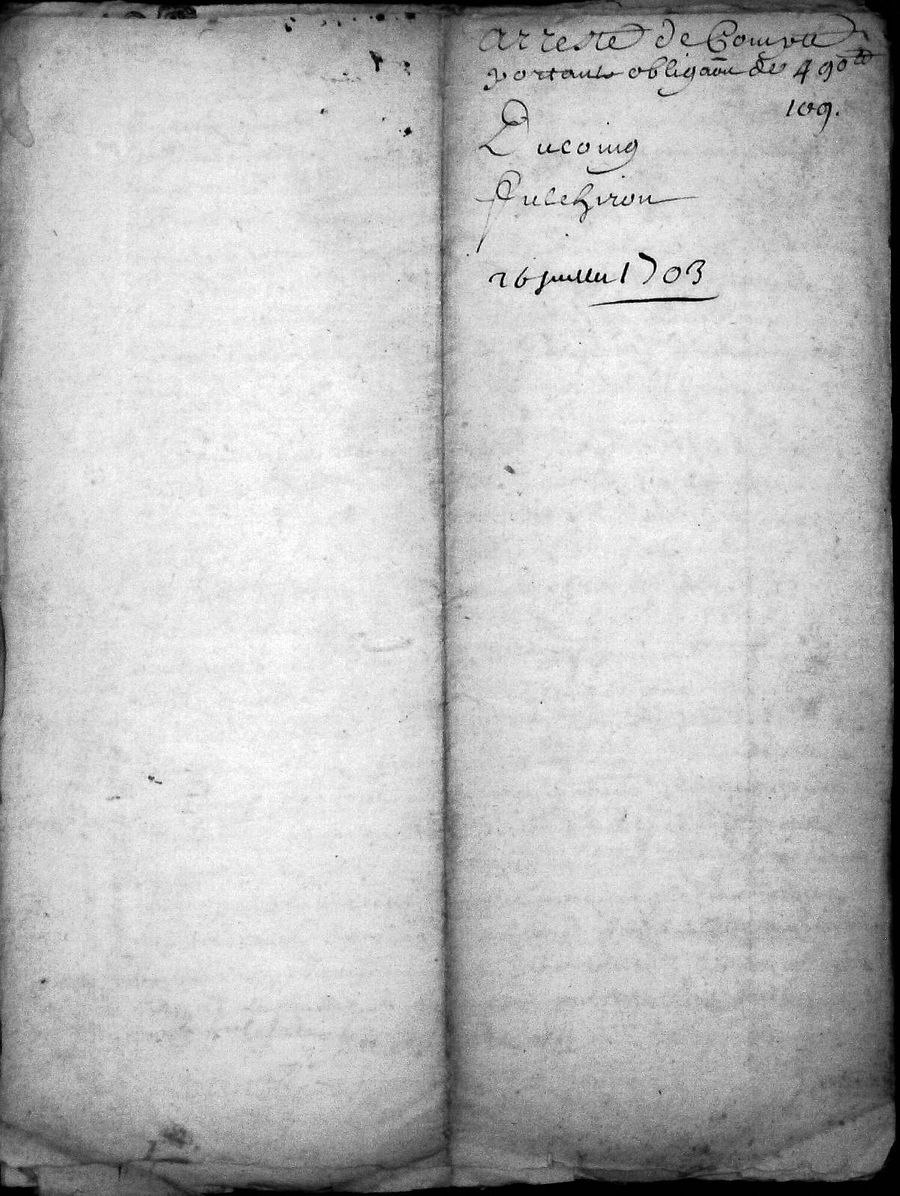 Arreste de Compte
portant obligaōn de 490ᵗᵗ
10ˢ.
Ducoing
Fulchiron
26 juillet 1703